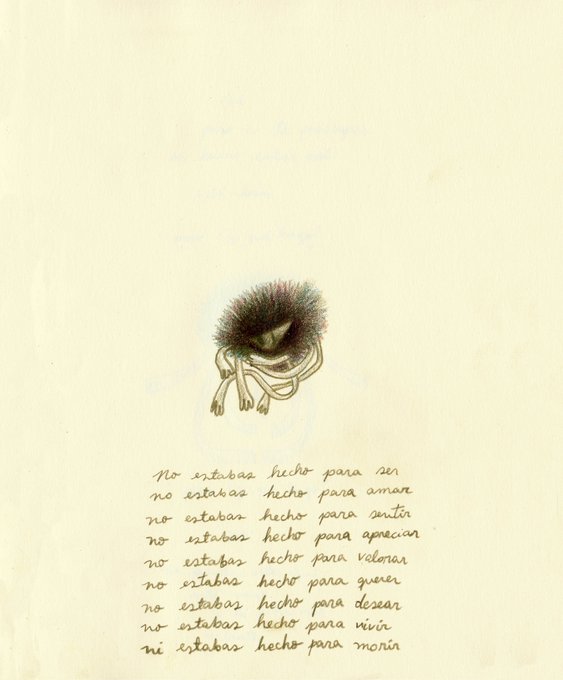 No estabas hecho para ser
no estabas hecho para amar
no estabas hecho para sentir
no estabas hecho para apreciar
no estabas hecho para valorar
no estabas hecho para querer
no estabas hecho para desear
no estabas hecho para vivir
ni estabas hecho para morir